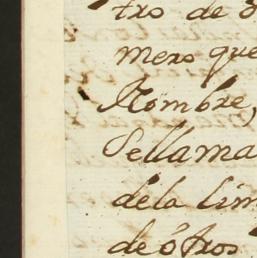 tro de
mero que
Nombre,
Sellama
dela Lim
de ótros